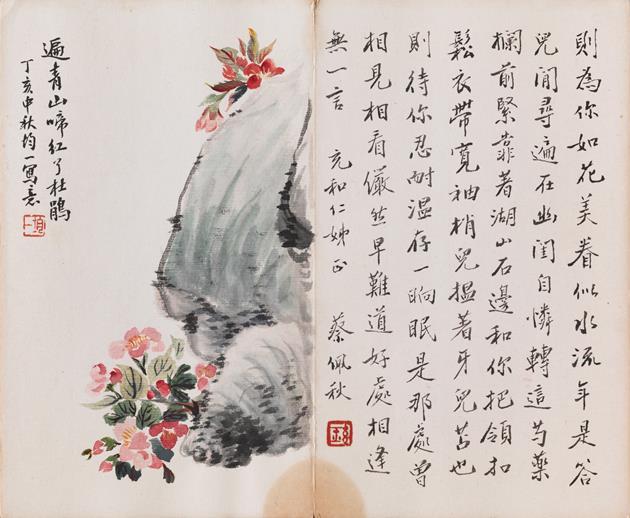 則為你如花美眷似水流年是答
兒閒尋遍在幽閨自憐轉這芍藥
欄前緊靠著湖山石邊和你把領扣
鬆衣帶寬袖梢兒搵著牙兒苫也
則待你忍耐溫存一晌眠是那處曾
相見相看儼然早難道好處相逢
無一言 充和仁姊正 蔡佩秋
遍青山啼紅了杜鵑
丁亥中秋均一寫意